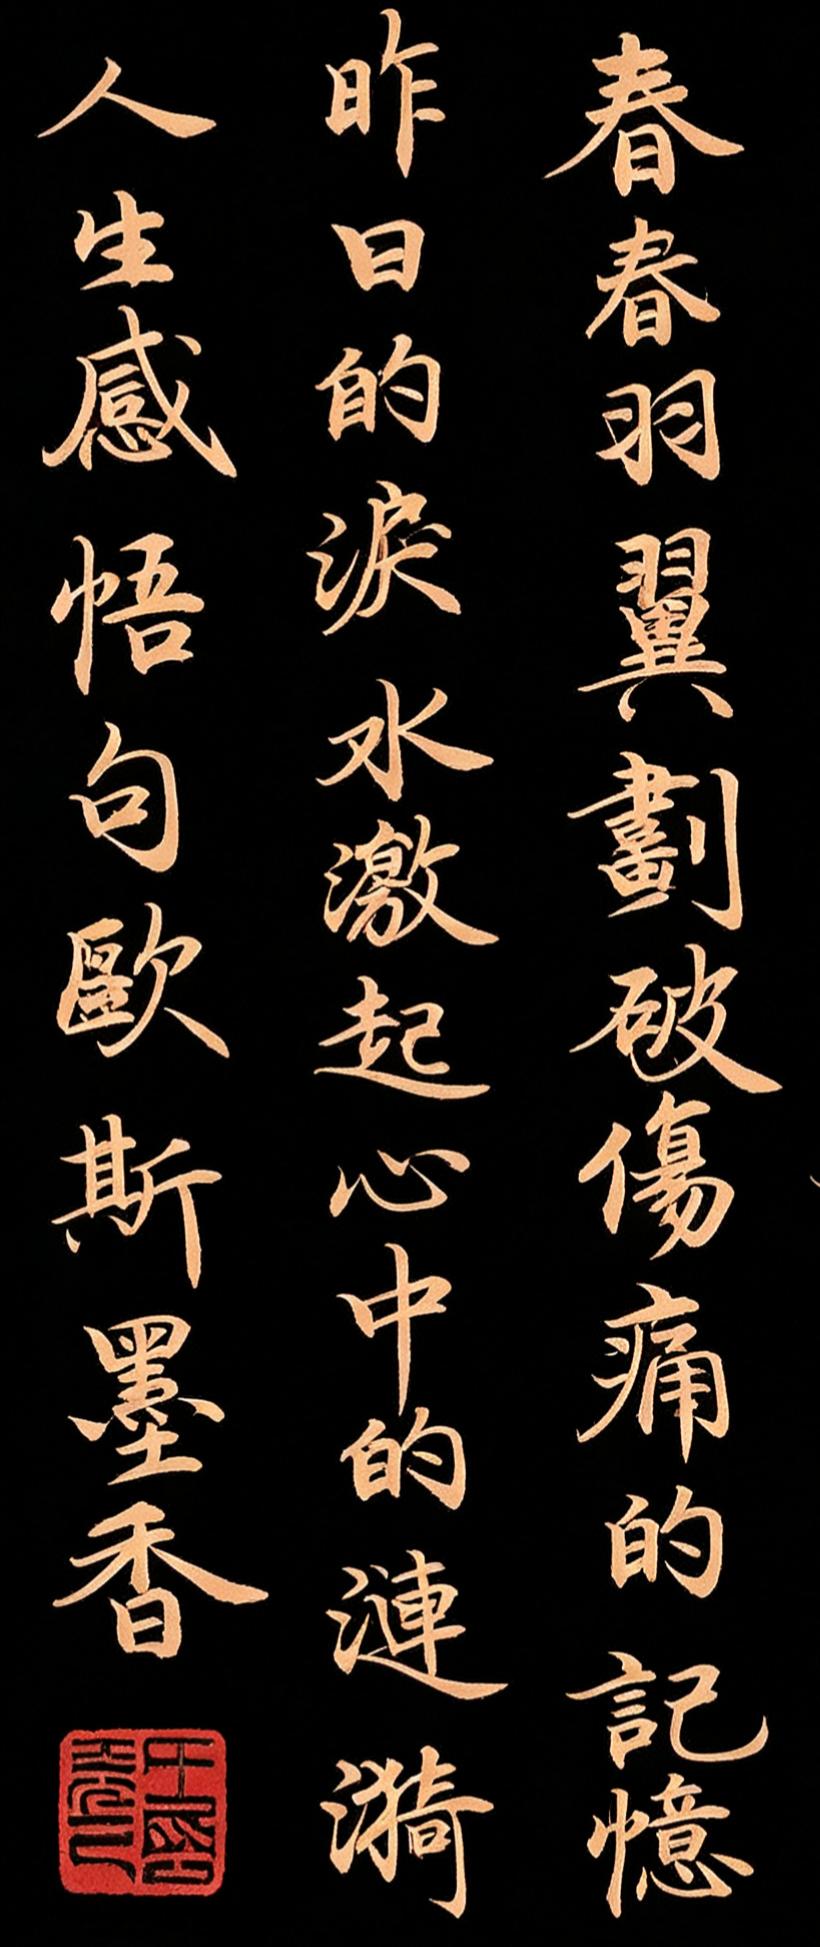 春春羽翼劃破傷痛的記憶
昨日的淚水激起心中的漣漪
人生感悟句歐斯墨香